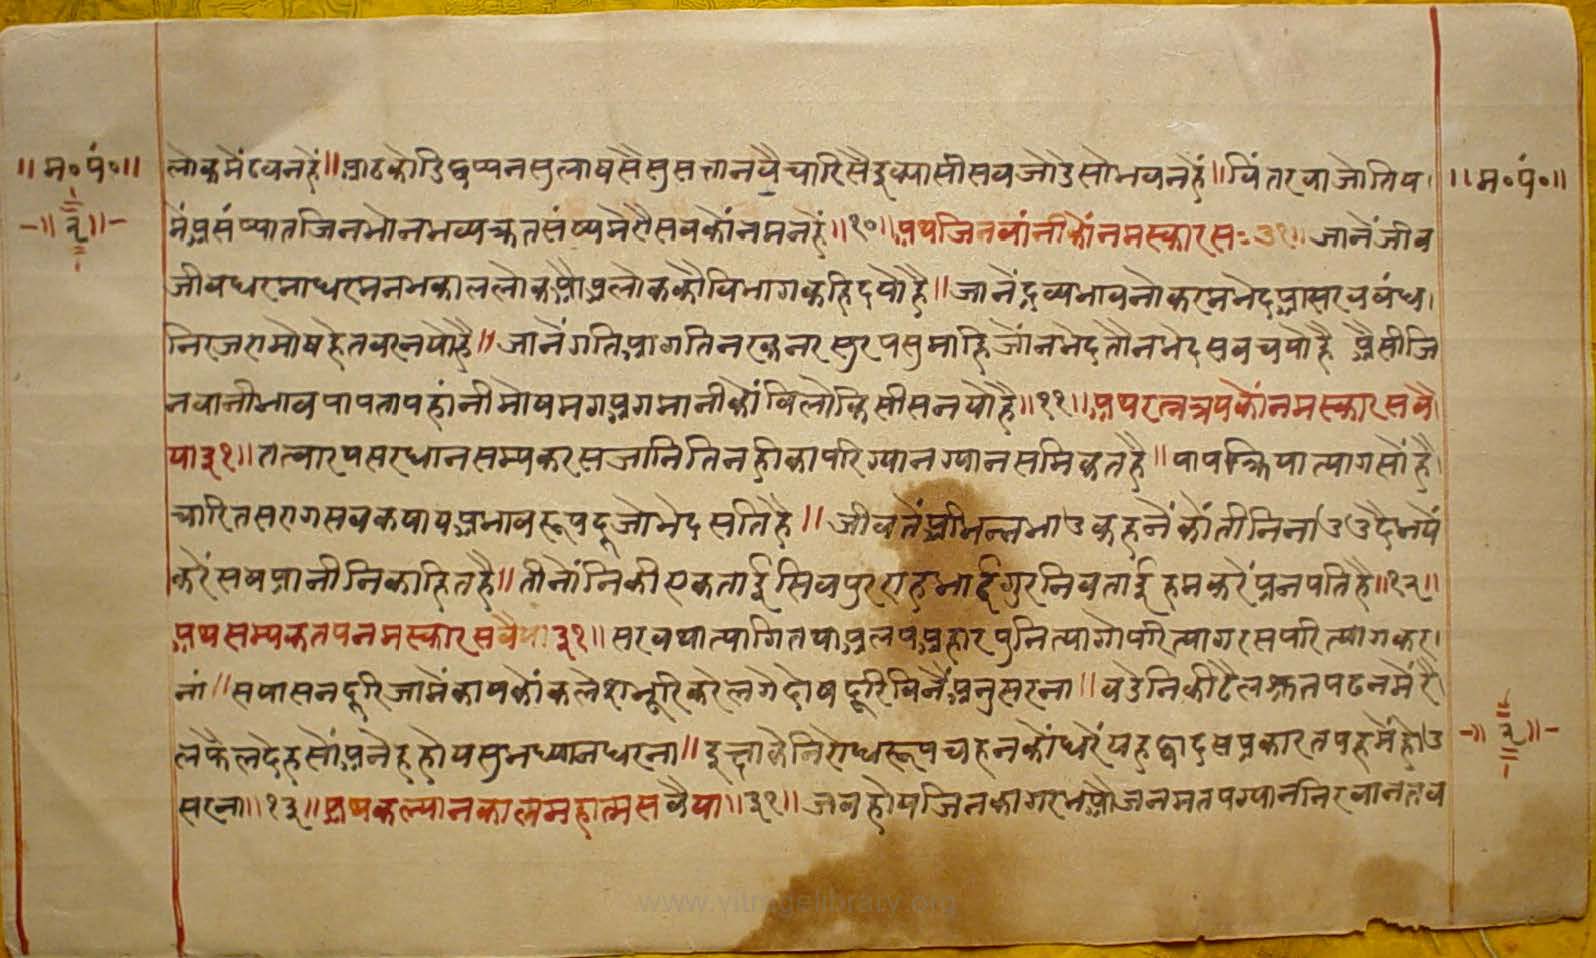 ॥म॰पं॰॥
॥२॥
लोकमें ववनहें॥ आठ कोडि छप्पन सु लाष सै सु सत्तानवै चारि सै इक्यासी सब जोडे सो भवन हें॥ विंतर वा जोतिष।
में असंष्यात जिनभोन भव्य च्क्रत संष्य मेरौ सबकों नमन हें॥१०॥ अथ जिनवांनीकों नमस्कार सः ३१॥ जानें जीव
जीव धरमाधरम नभ काल लोक औ अलोक कौ विभाग कहि दयो है॥ जानें द्रव्य भाव नोकरम भेद आसरव बंध।
निरजरा मोष हेत वरनयो है॥ जानें गति आगति नरक नर सुर पसु माहि जोंन भेद तौन भेद सब चयो है ऐसी जि
नवानी भाव पाप ताप हांनी मोष मग अगमानी कों विलोकि सीस नयो है॥११॥ अथ रत्नत्रयकों नमस्कार सवै
या ३१॥ तत्वारथ सरधान सम्यक रस जानि तिनहीका परिग्यान ग्यान समिकत है॥ पाप क्रिया त्याग सों है
चारित सराग सब कषाय अभाव रूप दूजो भेद सति है॥ जीवतें अभिन्न भाउ कहनें कों तीनि नाउ उदै भयें
करें सब प्रानीनिका हित है॥ तीनोंनिकी एकताई सिवपुर राह भाई गुरनि बताई हम करें प्रनपति है॥१२॥
अथ सम्यक तप नमस्कार सवैया ३१॥ सरवथा त्यागि तथा अलप अहार पुनि त्यागो परित्याग रस परित्याग कर।
नां॥ सयासन दूरि जामें काय कों कलेश भूरि करे लगे दोष दूरि विनैं अनुसरना॥ बडेनिकी टैल श्रुत पढनमें रै
ले फैल देह सों अनेह होय सुभ ध्यान धरना॥ इच्छाके निरोध रूप चहन कों धरें यह द्वादस प्रकार तप हमें होउ
सरना॥१३॥ अथ कल्यानकालमहात्म सवैया॥३१॥ जब होय जिनका गरभ औ जनम तप ग्यान निरवान तब
॥म॰पं॰॥
॥२॥
www.vitragelibrary.org